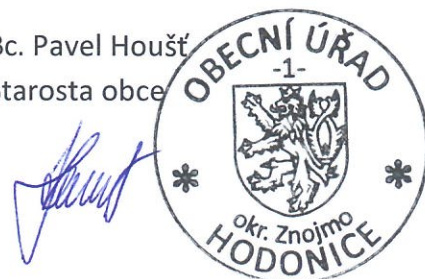 Bc. Pavel Houšť
Starosta obce
OBECNÍ ÚŘAD
-1-
okr. Znojmo
HODONICE